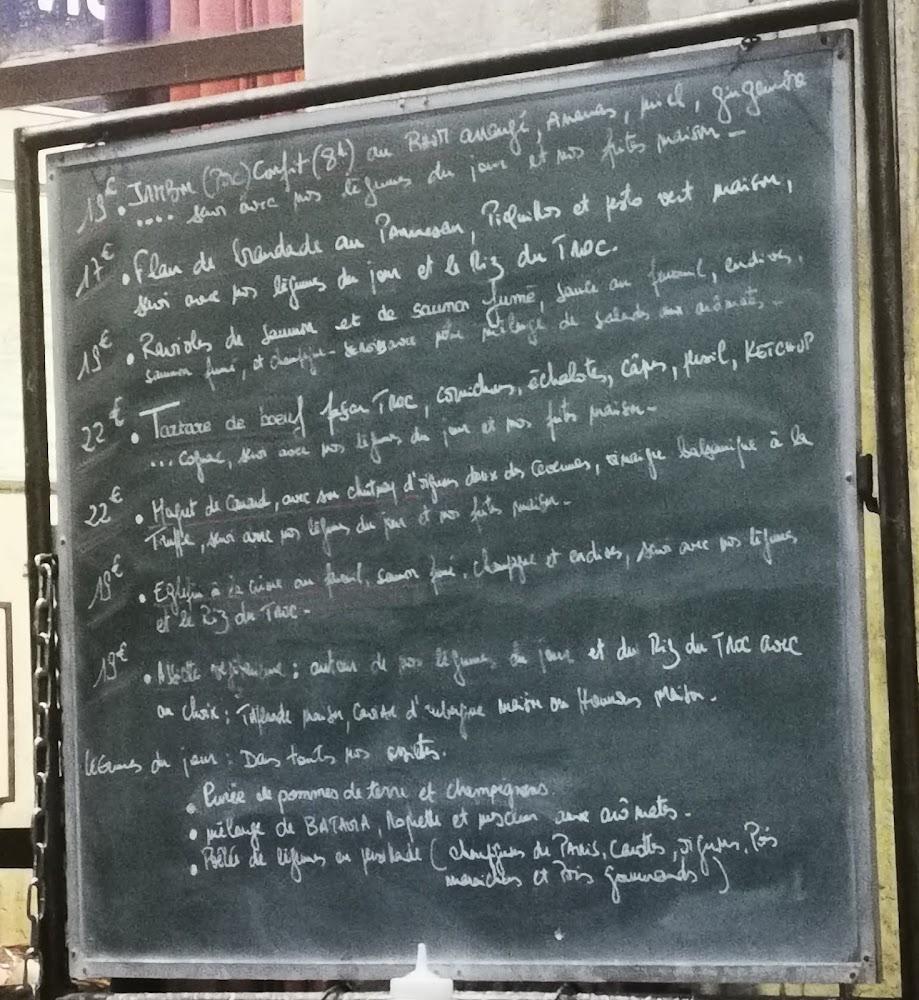 19€ • JAMBON (Porc) Confit (8h) au RHUM arrangé, Ananas, miel, gingembre
.... servi avec nos légumes du jour et nos frites maison -
17€ • Flan de brandade au Parmesan, Piquillos et pesto vert maison,
servi avec nos légumes du jour et le Riz du TROC.
19€ • Ravioles de saumon et de saumon fumé, sauce au fenouil, endives,
saumon fumé, et champagne - servis avec notre mélange de salades aux arômates -
22€ • Tartare de boeuf façon TROC, cornichons, échalotes, câpres, persil, KETCHUP
... cognac, servi avec nos légumes du jour et nos frites maison -
22€ • Magret de Canard, avec son chutney d'oignons doux des Cévennes, vinaigre balsamique à la
Truffe, servi avec nos légumes du jour et nos frites maison -
19€ • Eglefin à la crème au fenouil, saumon fumé, et endives, servi avec nos légumes
et le Riz du TROC -
19€ • Assiette végétarienne : autour de nos légumes du jour et du Riz du TROC avec
au choix : Tapenade maison, Caviar d'aubergine maison ou Houmous maison -
Légumes du jour : Dans toutes nos assiettes.
• Purée de pommes de terre et champignons.
• mélange de BATAVIA, Roquette et mesclun aux arômates -
• Poêlée de légumes en persillade (champignons de PARIS, carottes, oignons, Pois
maraichers et Pois gourmands)